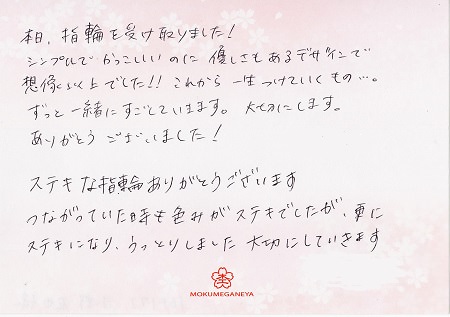 本日、指輪を受け取りました!
シンプルで かっこいいのに 優しさもあるデザインで
想像以上でした!! これから 一生つけていくもの…。
ずっと一緒にすごしていきます。 大切にします。
ありがとう ございました!
ステキな指輪ありがとうございます
つながっていた時も色みがステキでしたが、更に
ステキになり、うっとりしました 大切にしていきます
MOKUMEGANEYA